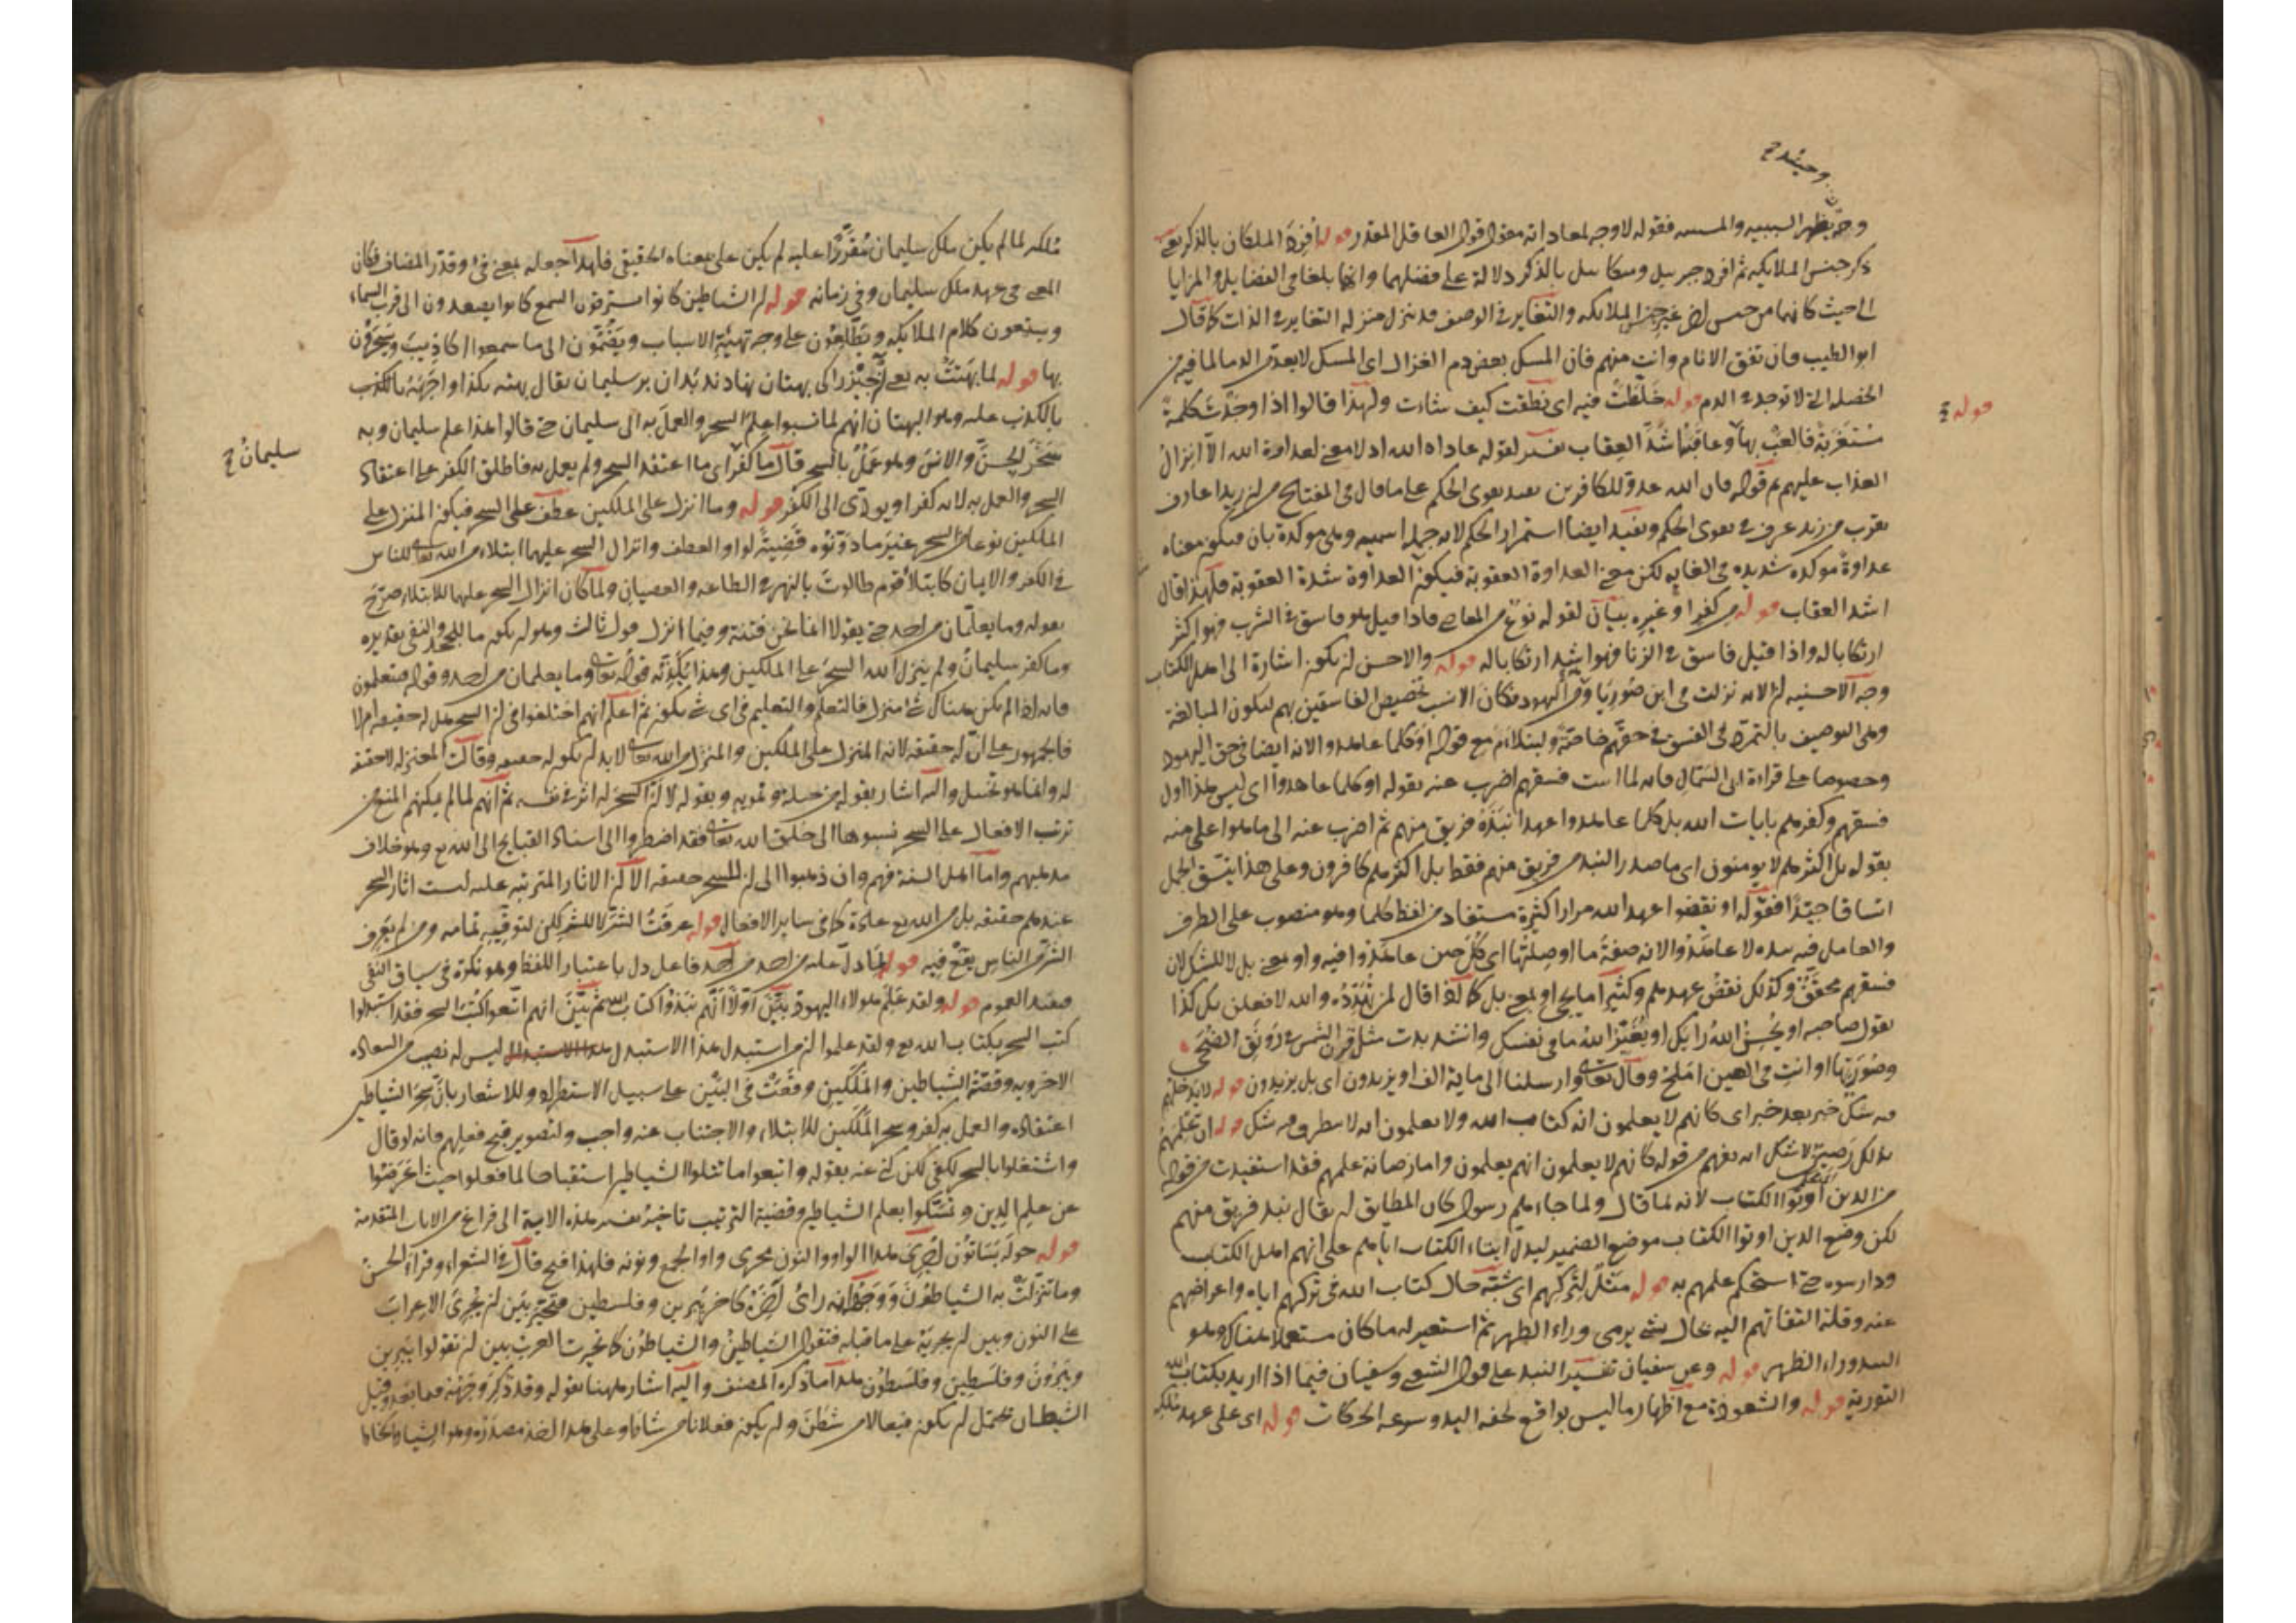 وحينئذ يظهر السببية والمسببية فقوله لا وجه لمعاداته مقول قول العاقل المقدر قوله أفرد الملكان بالذكر يعني
ذكر جنس الملائكة ثم افرد جبريل وميكائيل بالذكر دلالة على فضلهما وانهما بلغا في الفضايل والمزايا
الى حيث كانهما من جنس اخر غير جنس الملائكة والتغاير في الوصف قد ينزل منزلة التغاير في الذات كما قال
ابو الطيب فان تفق الانام وانت منهم فان المسك بعض دم الغزال اى المسك لا يعد من الدما لما فيه من
الخصلة التي لا توجد في الدم قوله خلطت فيه اى نطقت كيف شاءت ولهذا قالوا اذا وجدت كلمة
مستغربة فالعب بها وعاقبه اشد العقاب تفسير لقوله عاداه الله اذ لا معنى لعداوة الله الا انزال
العذاب عليهم ثم قوله فان الله عدو للكافرين يفيد تقوى الحكم على ما قال في المفتاح من ان زيدا عارف
يقرب من زيد عرف في تقوى الحكم ويفيد ايضا استمرار الحكم لانه جملة اسمية وهى موكدة بان فيكون معناه
عداوة موكدة شديدة في الغاية لكن معنى العداوة العقوبة فيكون العداوة شدة العقوبة فلهذا قال
اشد العقاب قوله من كفر او غيره بيان لقوله نوع من المعاصى فاذا قيل هو فاسق في الشرب فهو اكثر
ارتكابا له واذا قيل فاسق في الزنا فهو اشد ارتكابا له قوله والاحسن ان يكون اشارة الى اهل الكتاب
وجه الاحسنية ان الاية نزلت في ابن صوريا وهو من اليهود فكان الانسب تخصيص الفاسقين بهم ليكون المبالغة
وهى التوصيف بالتمرد في الفسق في حقهم خاصة وليتلاءم مع قوله أوكلما عاهدوا لانه ايضا في حق اليهود
وخصوصا على قراءة ابى السمال فانه لما اثبت فسقهم اضرب عنه بقوله او كلما عاهدوا اى ليس هذا اول
فسقهم وكفرهم بايات الله بل كلما عاهدوا عهدا نبذه فريق منهم ثم اضرب عنه الى ما هو اعلى منه
بقوله بل اكثرهم لا يومنون اى ما صدر النبذ من فريق منهم فقط بل اكثرهم كافرون وعلى هذا يتسق الجمل
اتساقا جيدا فقوله او نقضوا عهد الله مرارا كثيرة مستفاد من لفظ كلما وهو منصوب على الظرف
والعامل فيه نبذه لا عاهدوا لانه صفة ما او صلتها اى كل حين عاهدوا فيه واو بمعنى بل لا للشك لان
فسقهم محقق وكذلك نقض عهدهم وكثيرا ما يجئ او بمعنى بل كما اذا قال لمن تهدده والله لافعلن بك كذا
يقول صاحبه او يحسن الله رايك او يغير الله ما في نفسك وانشد بدت مثل قرن الشمس في رونق الضحى
وصورتها او انت في العين املح وقال تعالى وارسلناه الى ماية الف او يزيدون اى بل يزيدون قوله لا يدخلهم
فيه شك خبر بعد خبر اى كانهم لا يعلمون انه كتاب الله ولا يعلمون انه لا يتطرق فيه شك قوله ان علمهم
بذلك رصين لا شك انه يفهم من قوله كانهم لا يعلمون انهم يعلمون واما رصانة علمهم فقد استفيدت من قوله
من الذين أوتوا الكتاب لانه لما قال ولما جاءهم رسول كان المطابق ان يقال نبذ فريق منهم
لكن وضع الذين اوتوا الكتاب موضع الضمير ليدل ايتاء الكتاب اياهم على انهم اهل الكتاب
ودارسوه حتى استحكم علمهم به قوله مثل لتركهم اى شبه حال كتاب الله في تركهم اياه واعراضهم
عنه وقلة التفاتهم اليه بحال شئ يرمى وراء الظهر ثم استعير له ما كان مستعملا هناك وهو
النبذ وراء الظهر قوله وعن سفيان تفسير النبذ على قول الشعبى وسفيان فيما اذا اريد بكتاب الله
التورية قوله والشعوذة مع اظهار ما ليس بواقع لخفة اليد وسرعة الحركات قوله اى على عهد ملكه
وحينئذ ح
قوله
ملكه لما لم يكن ملك سليمان مقررا عليه لم يكن على معناه الحقيقى فلهذا جعله بمعنى في وقدر المضاف فكان
المعنى في عهد ملك سليمان وفي زمانه قوله ان الشياطين كانوا يسترقون السمع كانوا يصعدون الى قرب السماء
ويستمعون كلام الملائكة ويطلعون على وجه تهيئة الاسباب ويضمون الى ما سمعوا اكاذيب ويخبرون
بها قوله لما بهتت به
بالكذب عليه وهو البهتان انهم لما نسبوا علم السحر والعمل به الى سليمان حتى قالوا هذا علم سليمان وبه
سخر الجن والانس وهو عمل بالسحر قال ما كفر اى ما اعتقد السحر ولم يعمل به فاطلق الكفر على اعتقاد
السحر والعمل به لانه كفر او يودى الى الكفر قوله وما انزل على الملكين عطف على السحر فيكون المنزل على
الملكين نوعا من السحر غير ما دونوه قضية لواو العطف وانزال السحر عليهما ابتلاء من الله تعالى للناس
في الكفر والايمان كابتلاء قوم طالوت بالنهر في الطاعة والعصيان ولما كان انزال السحر عليهما للابتلاء صرح
بقوله وما يعلمان من احد حتى يقولا انما نحن فتنة وفيما انزل قول ثالث وهو ان يكون ما للجحد والنفى تقديره
وما كفر سليمان ولم ينزل الله السحر على الملكين وهذا يكذبه قوله تعالى وما يعلمان من احد وقوله فيتعلمون
فانه اذا لم يكن هناك شئ منزل فالتعلم والتعليم في اى شئ يكون ثم اعلم انهم اختلفوا في ان السحر هل له حقيقة ام لا
فالجمهور على ان له حقيقة لانه المنزل على الملكين والمنزل من الله تعالى لا بد ان يكون له حقيقة وقالت المعتزلة لا حقيقة
له وانما هو تخييل واليه اشار بقوله من حيلة وتمويه وبقوله لا ان السحر له اثر في نفسه ثم انهم لما لم يمكنهم المنع من
ترتب الافعال على السحر نسبوها الى خلق الله تعالى فقد اضطروا الى اسناد القبايح الى الله تع وهو خلاف
مذهبهم واما اهل السنة فهم وان ذهبوا الى ان للسحر حقيقة الا ان الاثار المترتبة عليه ليست اثار السحر
عندهم حقيقة بل من الله تع عادة كما في ساير الافعال قوله عرفت الشر لا للشر لكن لتوقيه تمامه ومن لم يعرف
الشر من الناس يقع فيه قوله لما دل عليه من احد من احد فاعل دل باعتبار اللفظ وهو نكرة في سياق النفى
فيفيد العموم قوله ولقد علم هولاء اليهود بين أولا انهم نبذوا كتاب الله ثم بين انهم اتبعوا كتب السحر فقد استبدلوا
كتب السحر بكتاب الله تع ولقد علموا ان من استبدل هذا الاستبدال ليس له نصيب من السعادة
الاخروية وقصة الشياطين والملكين وقعت في البين على سبيل الاستطراد وللاشعار بان سحر الشياطين
اعتقاده والعمل به كفر وسحر الملكين للابتلاء والاجتناب عنه واجب ولتصوير قبح فعلهم فانه لو قال
واشتغلوا بالسحر لكفى لكن كنى عنه بقوله واتبعوا ما تتلوا الشياطين استقباحا لما فعلوا حيث اعرضوا
عن علم الدين وتمسكوا بعلم الشياطين وقضية الترتيب تاخير تفسير هذه الاية الى فراغ من الايات المتقدمة
قوله حوله بساتون اجرى هذا الواو والنون مجرى واو الجمع ونونه فلهذا فتح قال في الشعراء وقراءة الحسن
وما تنزلت به الشياطون ووجهه انه راى اخره كاخر يبرين وفلسطين فتخير بين ان يجرى الاعراب
على النون وبين ان يجريه على ما قبله فتقول الشياطين والشياطون كما تخيرت العرب بين ان تقولوا يبرين
ويبرون وفلسطين وفلسطون هذا ما ذكره المصنف واليه اشار ههنا بقوله وقد ذكر وجهه فيما بعد وقيل
الشيطان يحتمل ان يكون فيعالا من شطن وان يكون فعلانا من شاط
سليمان ح